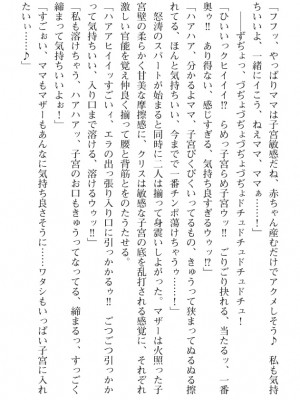 「フフッ、やっぱりママは子宮敏感だね、赤ちゃん産むだけでアクメしそう♪　私も気持
ちいいよ、一緒にイこう、ねえママ、ママぁ……！」
「ひいぃっクヒイイイ⁉　らめっ子宮らめ子宮ウッ‼　ごりごり抉れる、当たるッ、一番
奥ゥ‼　あり得ない、感じすぎる、気持ち良すぎるウゥッ⁉」
「ハアハア、分かるよママ、子宮びくびくいってるもの、きゅうって狭まってぬるぬる擦
れてる、ほんと気持ちいい、今までで一番チンポ蕩けちゃうゥ……！」
怒涛のスパートが始まると同時に二人は揃って身震いしよがった。マザーは火照った子
宮壁の柔らかく甘美な摩擦感に、クリスは敏感な子宮の底を乱打される感覚に、それぞれ
激しい官能を覚え仲良く揃って腰と背筋をのたうたせる。
「ハアアヒイイッすごいィ、エラの出っ張り入り口に引っかかるゥ‼　ごつごつ引っかか
って気持ちいい、入り口まで溶ける、溶けるウゥッ‼」
「私も溶けちゃう、ハアハアッ、子宮のお口もきゅうってなってる、締まるっ、すっごく
締まって気持ちいいよぉ！」
「すごぉい、ママもマザーもあんなに気持ち良さそうに……ワタシもいっぱい子宮に入れ
たいい……♪」